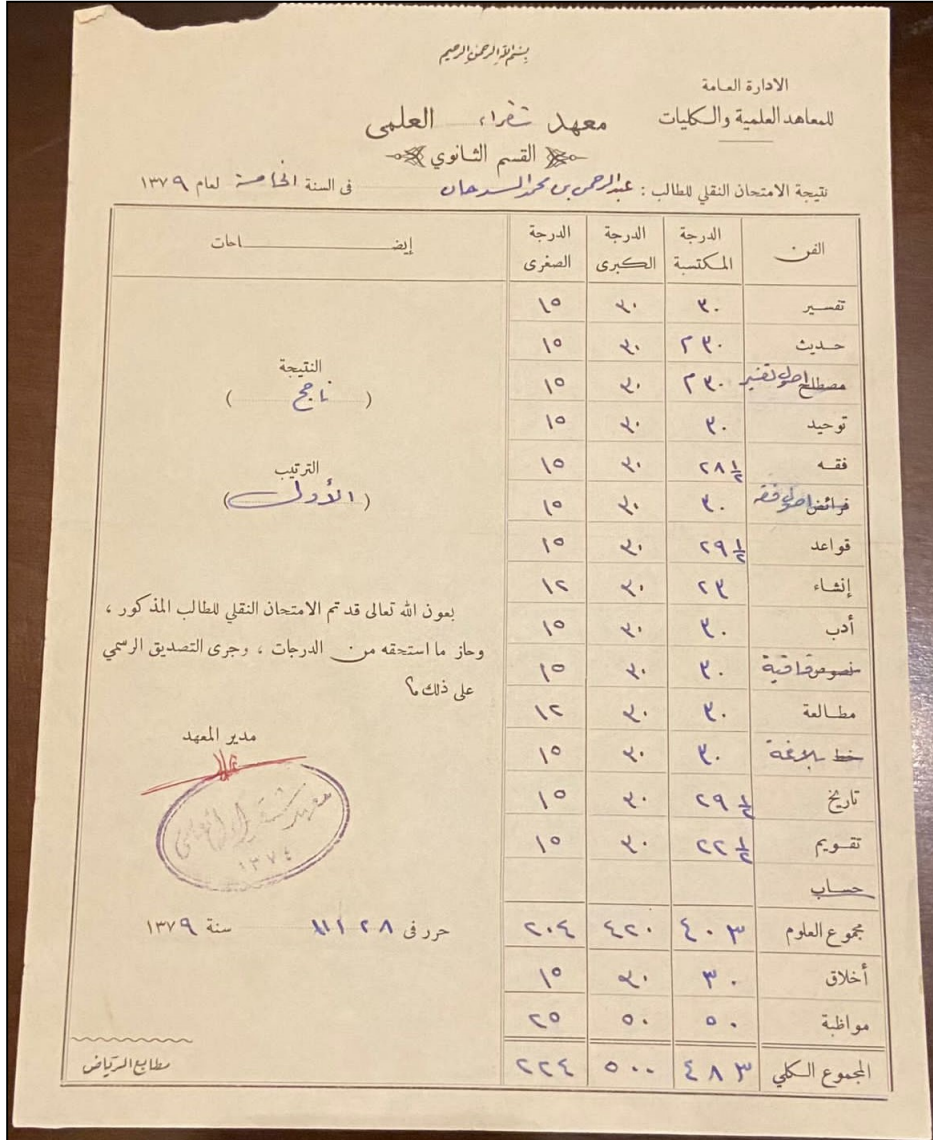 بسم الله الرحمن الرحيم
الادارة العامة
للمعاهد العلمية والكليات
معهد شقراء العلمي
القسم الثانوي
نتيجة الامتحان النقلي للطالب : عبدالرحمن بن محمد السدحان في السنة الخامسة لعام ١٣٧٩
الفن الدرجة المكتسبة الدرجة الكبرى الدرجة الصغرى إيضـاحات
تفسير ٣٠ ٣٠ ١٥
حديث ٣٠ ١٥
مصطلح اصول تفسير ٣٠ ١٥
توحيد ٣٠ ٣٠ ١٥
فقه ٢٨ ١/٢ ٣٠ ١٥
فرائض اصول فقه ٣٠ ٣٠ ١٥
قواعد ٢٩ ١/٢ ٣٠ ١٥
إنشاء ٢٣ ٣٠ ١٢
أدب ٣٠ ٣٠ ١٥
نصوص قافية ٣٠ ٣٠ ١٥
مطالعة ٣٠ ٣٠ ١٢
خط بلاغة ٣٠ ٣٠ ١٥
تاريخ ٢٩ ١/٢ ٣٠ ١٥
تقويم ٢٢ ١/٢ ٣٠ ١٥
حساب
مجموع العلوم ٤٠٣ ٤٢٠ ٢٠٤
أخلاق ٣٠ ٣٠ ١٥
مواظبة ٥٠ ٥٠ ٢٥
المجموع الكلي ٤٨٣ ٥٠٠ ٢٢٤
النتيجة
( ناجح )
الترتيب
( الأول )
بعون الله تعالى قد تم الامتحان النقلي للطالب المذكور ،
وحاز ما استحقه من الدرجات ، وجرى التصديق الرسمي
على ذلك
مدير المعهد
معهد شقراء العلمي
١٣٧٤
حرر في ٢٨ سنة ١٣٧٩
مطابع الرياض